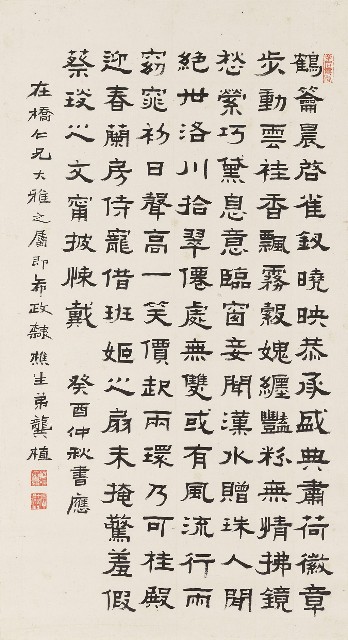 鶴籥晨啓雀釵曉映恭承盛典肅荷徽章
步動雲袿香飄霧縠媿纏豔粉無情拂鏡
愁縈巧黛息意臨窗妾聞漢水贈珠人間
絕世洛川拾翠僊處無雙或有風流行雨
窈窕初日聲高一笑價起兩環乃可桂殿
迎春蘭房侍寵借班姬之扇未掩驚羞假
蔡琰之文甯披悚戴 癸酉仲秋書應
在橋仁兄大雅之屬即希政隸樵生弟龔植